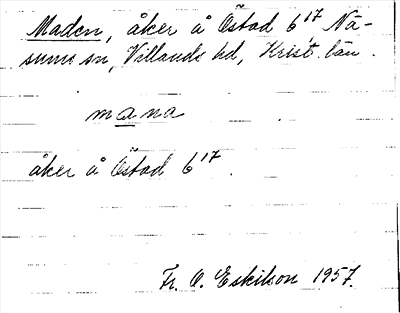 Maden, åker å Östad 6¹⁷, Nä-
sums sn, Villands hd, Krist. län.
mana
åker å Östad 6¹⁷.
Fr. O. Eskilson 1957.